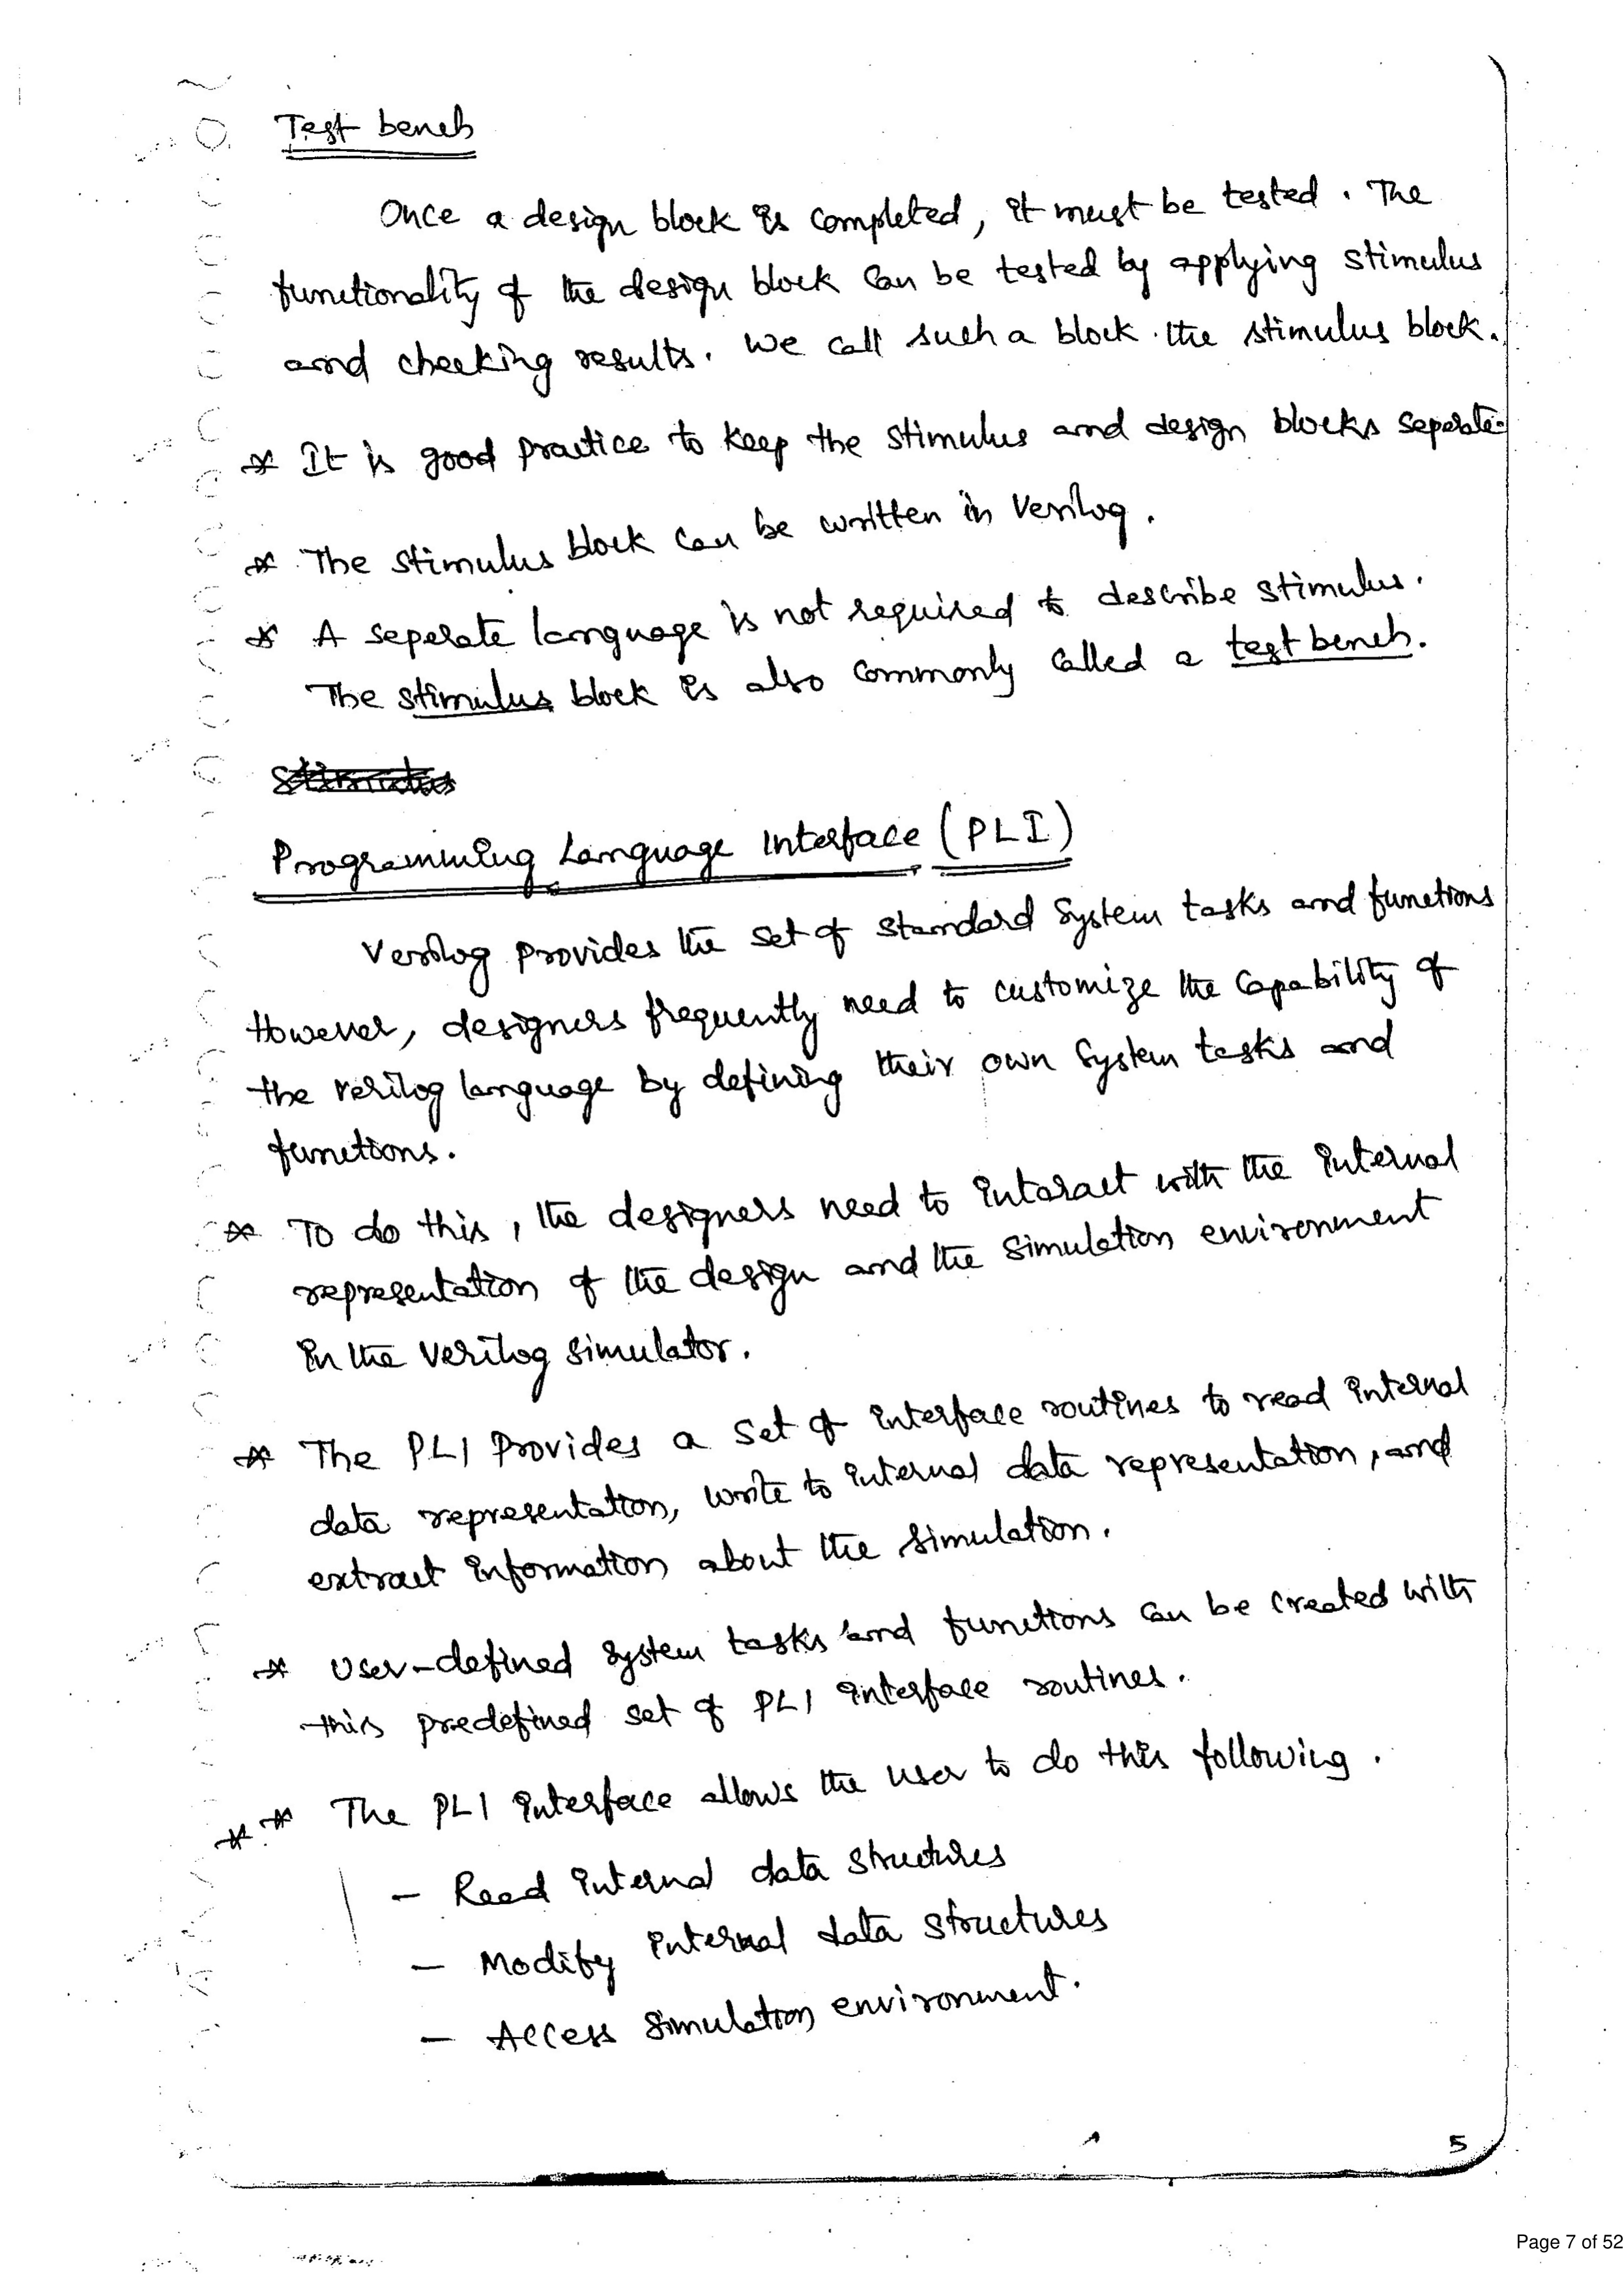 Test bench
Once a design block is completed, it must be tested. The
functionality of the design block can be tested by applying stimulus
and checking results. We call such a block the stimulus block.
* It is good practice to keep the stimulus and design blocks seperate.
* The stimulus block can be written in Verilog.
* A seperate language is not required to describe stimulus.
The stimulus block is also commonly called a test bench.
Programming Language Interface (PLI)
Verilog provides the set of standard system tasks and functions
However, designers frequently need to customize the capability of
the verilog language by defining their own system tasks and
functions.
* To do this, the designers need to interact with the internal
representation of the design and the simulation environment
in the verilog simulator.
* The PLI provides a set of interface routines to read internal
data representation, write to internal data representation, and
extract information about the simulation.
* User-defined system tasks and functions can be created with
this predefined set of PLI interface routines.
** The PLI interface allows the user to do this following.
- Read internal data structures
- Modify internal data structures
- Access simulation environment.
5
Page 7 of 52